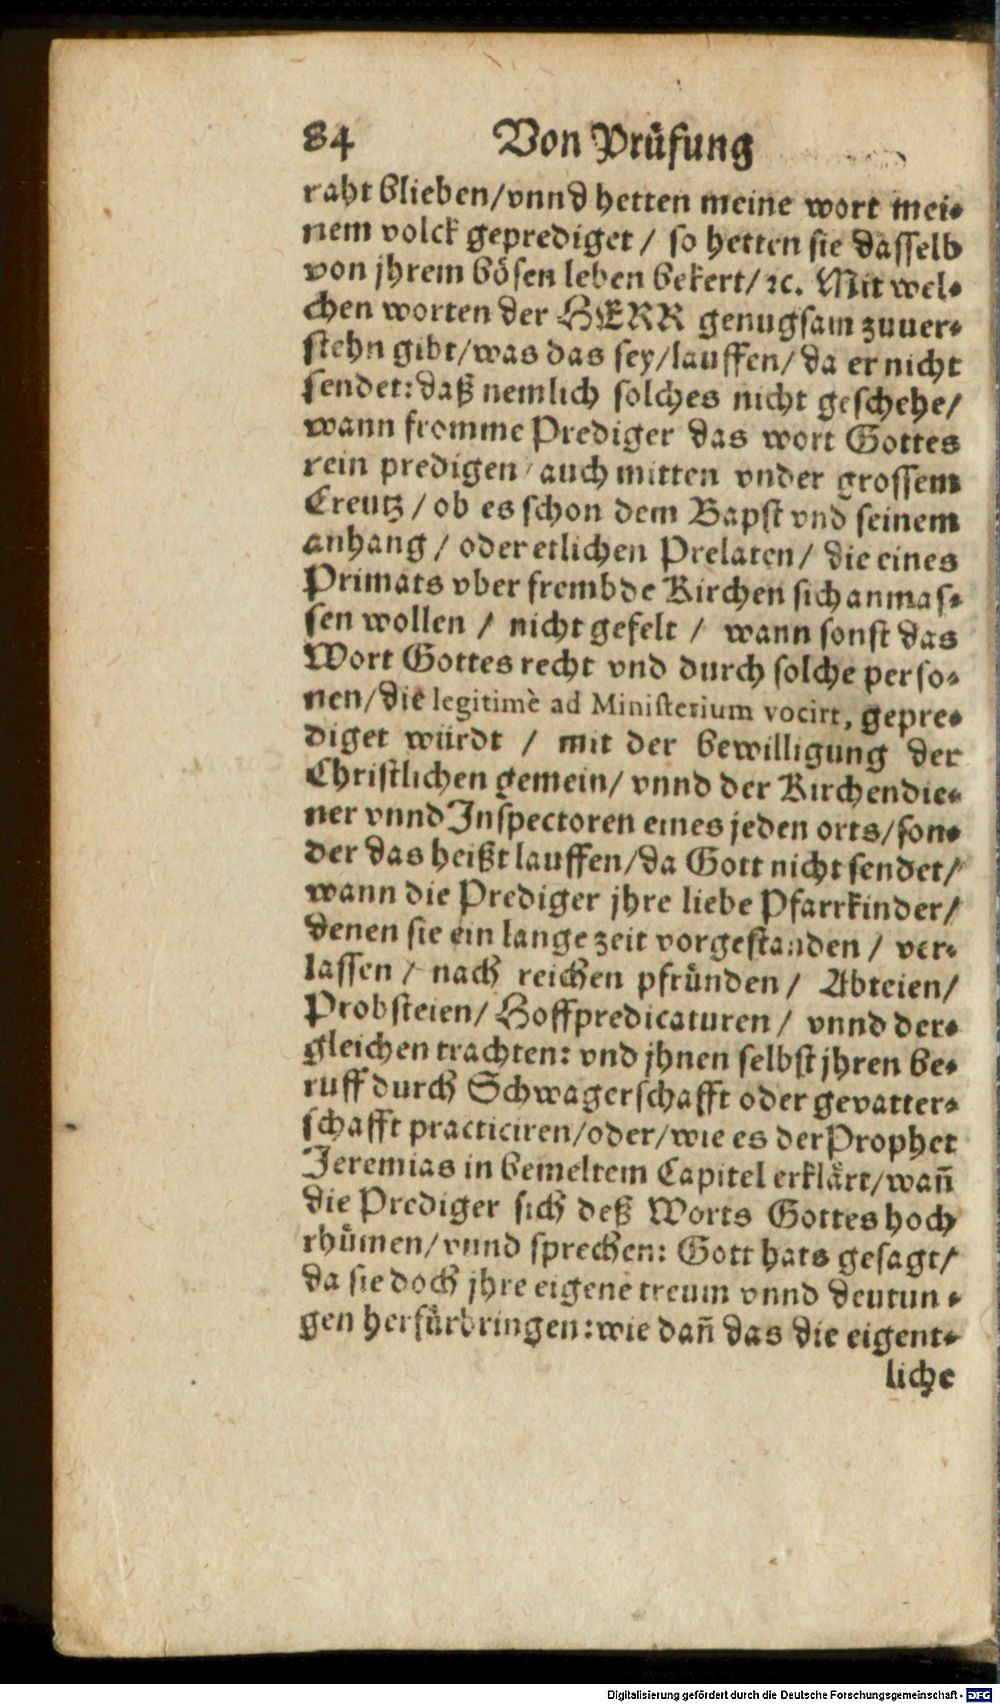 84 Von Prüfung
raht blieben/vnnd hetten meine wort mei⸗
nem volck geprediget / so hetten sie dasselb
von jhrem bösen leben bekert/ ꝛc. Mit wel⸗
chen worten der HERR genugsam zuuer⸗
stehn gibt/was das sey/lauffen/ da er nicht
sendet: daß nemlich solches nicht geschehe/
wann fromme Prediger das wort Gottes
rein predigen / auch mitten vnder grossem
Creutz / ob es schon dem Bapst vnd seinem
anhang / oder etlichen Prelaten / die eines
Primats vber frembde Kirchen sich anmas⸗
sen wollen / nicht gefelt / wann sonst das
Wort Gottes recht vnd durch solche perso⸗
nen/die legitimè ad Ministerium vocirt, gepre⸗
diget würdt / mit der bewilligung der
Christlichen gemein/ vnnd der Kirchendie⸗
ner vnnd Inspectoren eines jeden orts/son⸗
der das heißt lauffen/da Gott nicht sendet/
wann die Prediger jhre liebe Pfarrkinder/
denen sie ein lange zeit vorgestanden / ver⸗
lassen / nach reichen pfründen / Abteien/
Probsteien/ Hoffpredicaturen / vnnd der⸗
gleichen trachten: vnd jhnen selbst jhren be⸗
ruff durch Schwagerschafft oder gevatter⸗
schafft practiciren/oder/wie es der Prophet
Jeremias in bemeltem Capitel erklärt/wañ
die Prediger sich deß Worts Gottes hoch
rhümen/vnnd sprechen: Gott hats gesagt/
da sie doch jhre eigene treum vnnd deutun⸗
gen herfürbringen: wie dañ das die eigent⸗
liche
Digitalisierung gefördert durch die Deutsche Forschungsgemeinschaft - DFG